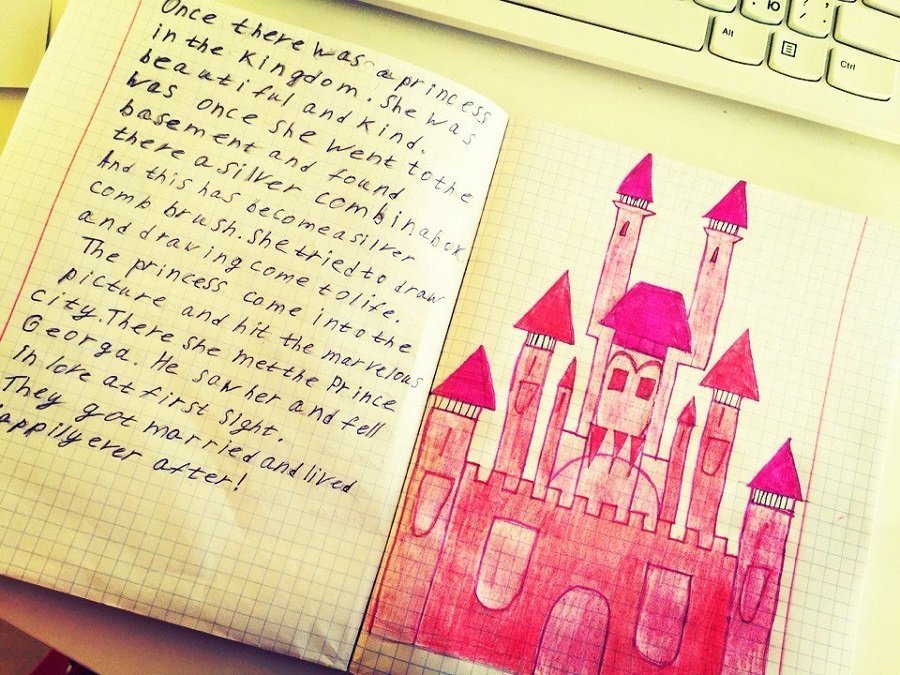 Once there was a princess
in the Kingdom. She was
beautiful and Kind.
was once she went to the
basement and found
there a silver comb in a box
And this has become a silver
comb brush. She tried to draw
and drawing come to life.
The princess come into the
picture and hit the marvelous
city. There she met the Prince
Georga. He saw her and fell
in love at first sight.
They got married and lived
happily ever after!
Alt
Ctrl